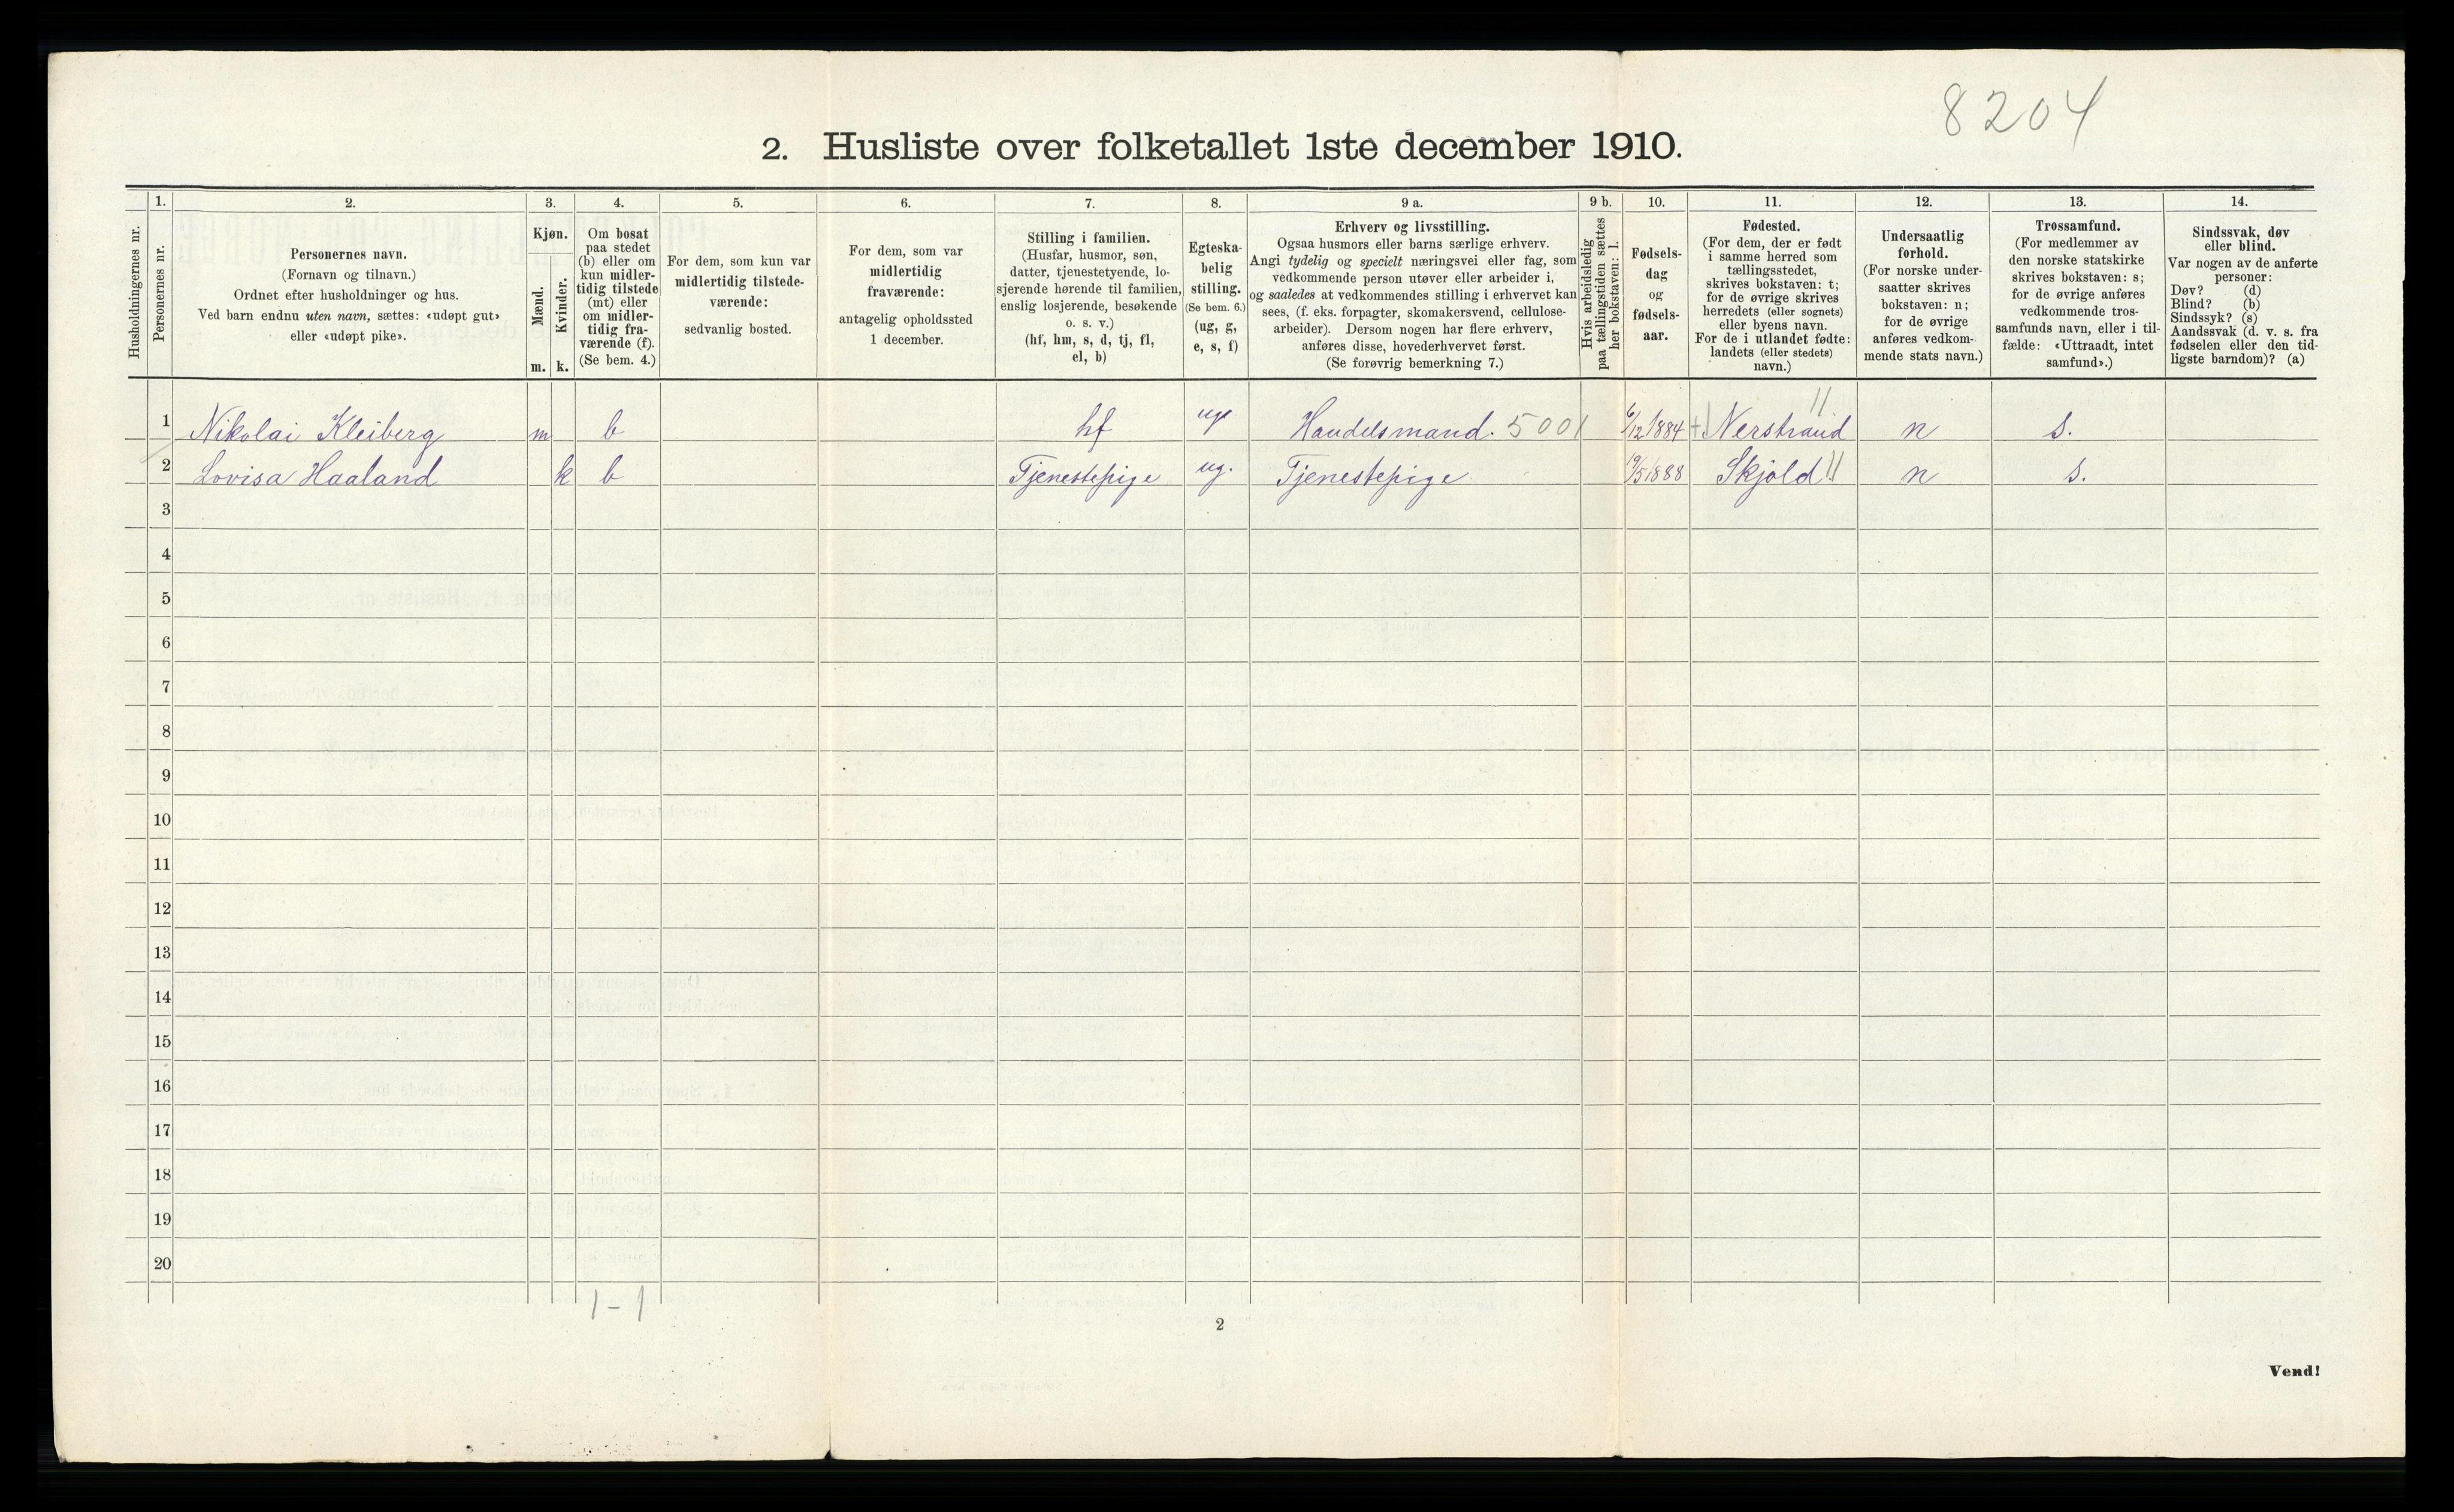 8204
2. Husliste over folketallet 1ste december 1910.
Husholdningernes nr.
1.
Personernes nr.
2.
Personernes navn.
(Fornavn og tilnavn.)
Ordnet efter husholdninger og hus.
Ved barn endnu uten navn, sættes: «udøpt gut»
eller «udøpt pike».
3.
Kjøn.
Mænd.
Kvinder.
m. k.
4.
Om bosat
paa stedet
(b) eller om
kun midler-
tidig tilstede
(mt) eller
om midler-
tidig fra-
værende (f).
(Se bem. 4.)
5.
For dem, som kun var
midlertidig tilstede-
værende:
sedvanlig bosted.
6.
For dem, som var
midlertidig
fraværende:
antagelig opholdssted
1 december.
7.
Stilling i familien.
(Husfar, husmor, søn,
datter, tjenestetyende, lo-
sjerende hørende til familien,
enslig losjerende, besøkende
o. s. v.)
(hf, hm, s, d, tj, fl,
el, b)
8.
Egteska-
belig
stilling.
(Se bem. 6.)
(ug, g,
e, s, f)
9 a.
Erhverv og livsstilling.
Ogsaa husmors eller barns særlige erhverv.
Angi tydelig og specielt næringsvei eller fag, som
vedkommende person utøver eller arbeider i,
og saaledes at vedkommendes stilling i erhvervet kan
sees, (f. eks. forpagter, skomakersvend, cellulose-
arbeider). Dersom nogen har flere erhverv,
anføres disse, hovederhvervet først.
(Se forøvrig bemerkning 7.)
9 b.
Hvis arbeidsledig
paa tællingstiden sættes
her bokstaven: l.
10.
Fødsels-
dag
og
fødsels-
aar.
11.
Fødested.
(For dem, der er født
i samme herred som
tællingsstedet,
skrives bokstaven: t;
for de øvrige skrives
herredets (eller sognets)
eller byens navn.
For de i utlandet fødte:
landets (eller stedets)
navn.)
12.
Undersaatlig
forhold.
(For norske under-
saatter skrives
bokstaven: n;
for de øvrige
anføres vedkom-
mende stats navn.)
13.
Trossamfund.
(For medlemmer av
den norske statskirke
skrives bokstaven: s;
for de øvrige anføres
vedkommende tros-
samfunds navn, eller i til-
fælde: «Uttraadt, intet
samfund».)
14.
Sindssvak, døv
eller blind.
Var nogen av de anførte
personer:
Døv? (d)
Blind? (b)
Sindssyk? (s)
Aandssvak (d. v. s. fra
fødselen eller den tid-
ligste barndom)? (a)
1 Nikolai Kleiberg m b hf ug Handelsmand. 5001 6/12 1884 Nerstrand n s.
2 Lovisa Haaland k b Tjenestepige ug. Tjenestepige 1888 Skjold n s.
3
4
5
6
7
8
9
10
11
12
13
14
15
16
17
18
19
20
1-1
2
Vend!